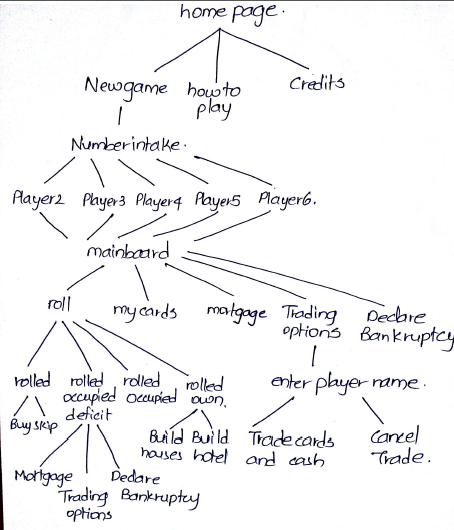 home page.
Newgame
how to
play
Credits
Number intake.
Player2 Player3 Player4 Player5 Player6.
mainboard
roll
my cards
mortgage
Trading
options
Declare
Bankruptcy
rolled
rolled
occupied
deficit
rolled
occupied
rolled
own.
enter player name.
Buy skip
Build
houses
Build
hotel
Trade cards
and cash
Cancel
Trade.
Mortgage
Trading
options
Declare
Bankruptcy